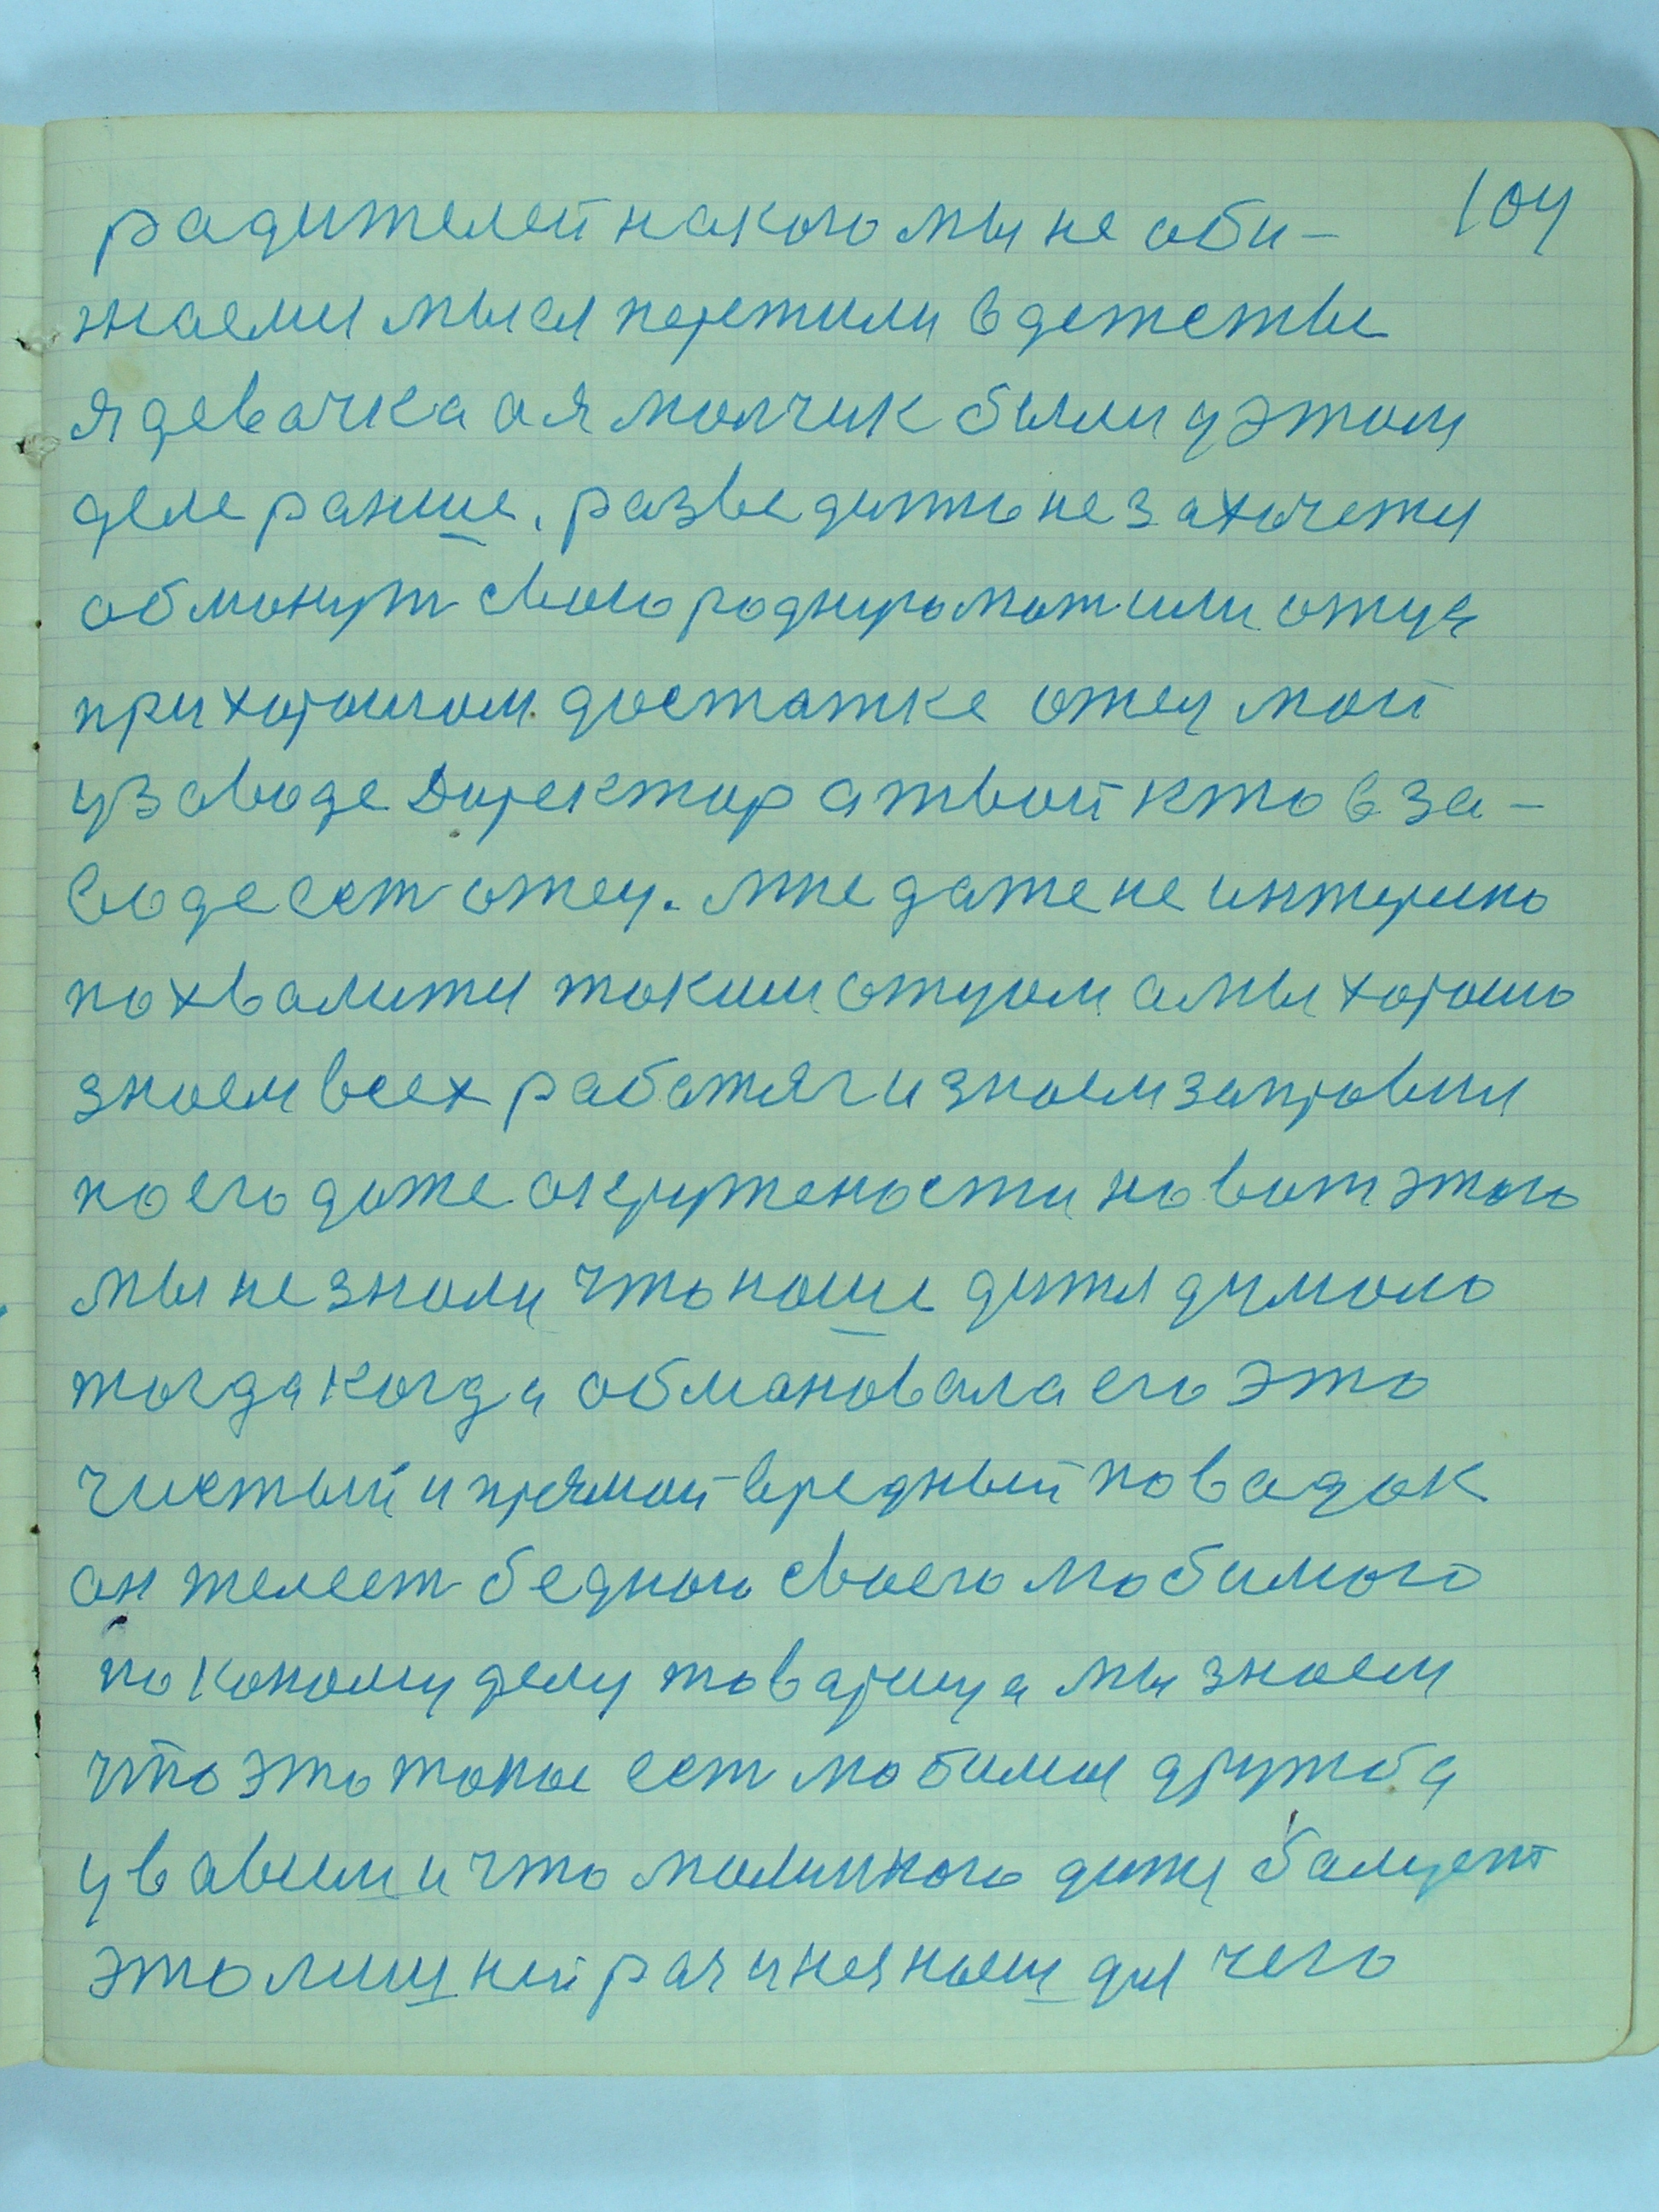 104
радителей накого мы не оби-
жаемся мы ея пережили в детстве
я девачка а я малчик были у этом
деле раньше, разве дитю не захочется
обмонут свою родную мат или отца
при хорошом достатке отец мой
у заводе Директор а твой кто в за-
воде ест отец. мне даже не интересно
похвалится таким отцом а мы хорошо
знаем всех работяг и знаем
по его даже окружености но вот этого
мы не знали что наше дитя думало
тогда когда обмановала его это
чистый и прямой вредный повадок
он желеет бедного своего любимого
по коному делу товарища мы знаем
что это такое ест любимая дружба
у вавшем и что малинкого дитя балуют
это лишней раз и не наеш для чего